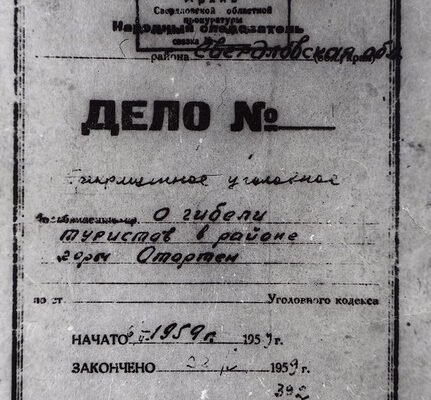 Архив
Свердловской областной
прокуратуры
Народный следователь
района Свердловская обл.
ДЕЛО №
уголовное
О гибели
туристов в районе
горы Отортен
по ст. Уголовного кодекса
НАЧАТО 1959 г. 1959 г.
ЗАКОНЧЕНО 1959 г.
392